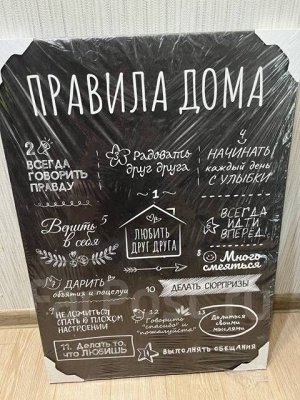 ПРАВИЛА ДОМА
2
ВСЕГДА
ГОВОРИТЬ
ПРАВДУ
3
Радовать
друг друга
4
НАЧИНАТЬ
каждый день
С УЛЫБКИ
1
ЛЮБИТЬ
ДРУГ ДРУГА
Верить 5
в себя
6
ВСЕГДА
ИДТИ
ВПЕРЕД!
7
ДАРИТЬ
объятия и поцелуи
8 Много
смеяться
9
НЕ ЛОЖИТЬСЯ
СПАТЬ В ПЛОХОМ
НАСТРОЕНИИ
10
ДЕЛАТЬ СЮРПРИЗЫ
11. Делать то,
что ЛЮБИШЬ
12
Говорить
"спасибо" и
"пожалуйста"
13
Делиться
своими
мыслями
14
ВЫПОЛНЯТЬ ОБЕЩАНИЯ